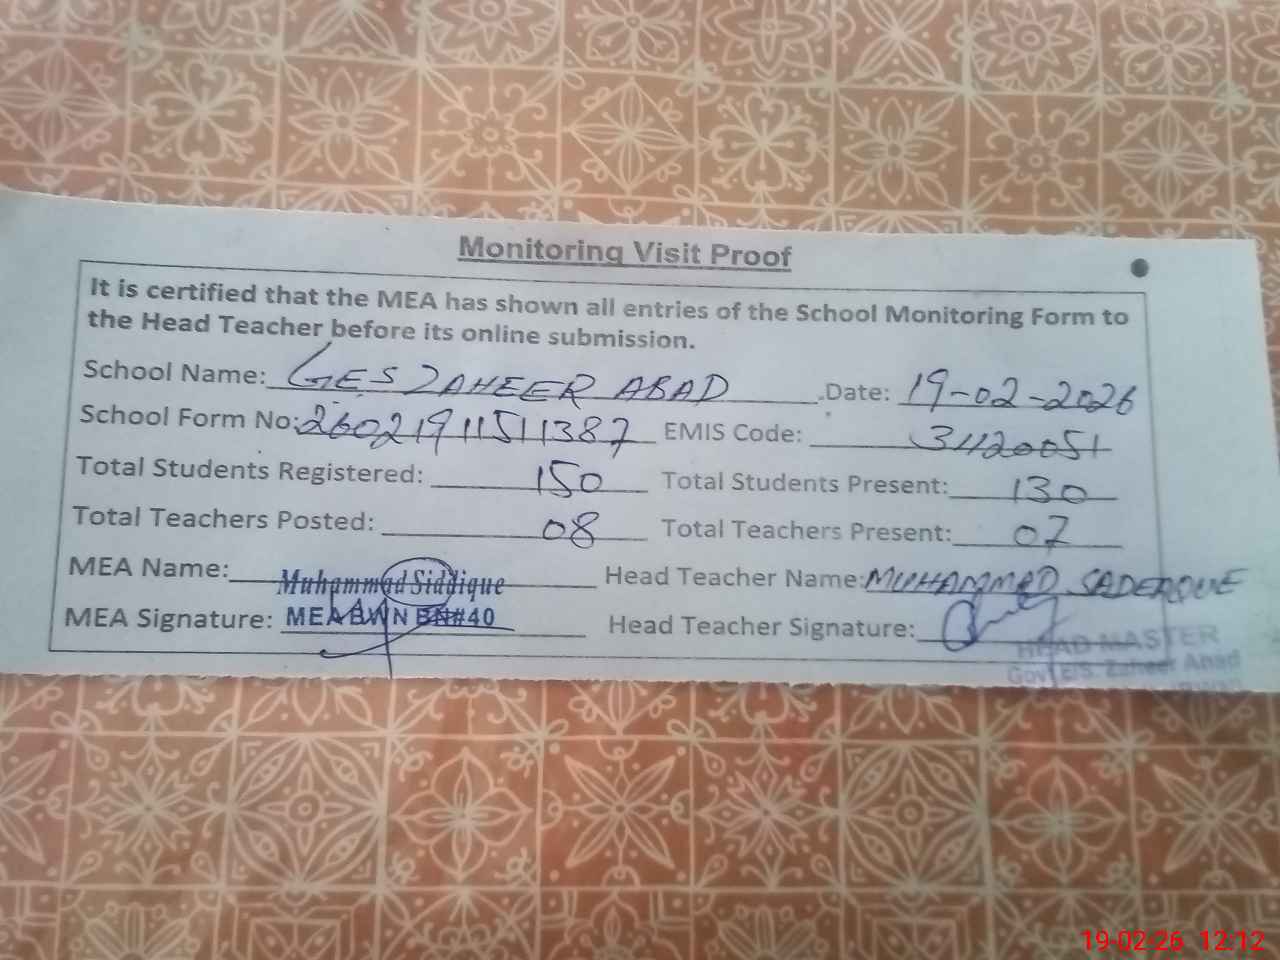 Monitoring Visit Proof
It is certified that the MEA has shown all entries of the School Monitoring Form to
the Head Teacher before its online submission.
School Name: GES ZAHEER ABAD Date: 19-02-2026
School Form No: 26021911511387 EMIS Code: 31120051
Total Students Registered: 150 Total Students Present: 130
Total Teachers Posted: 08 Total Teachers Present: 07
MEA Name: Muhammad Siddique Head Teacher Name: MUHAMMAD
MEA Signature: MEA BWN BN#40 Head Teacher Signature:
HEAD MASTER
Govt E/S. Zaheer Abad
19-02-26 12:12